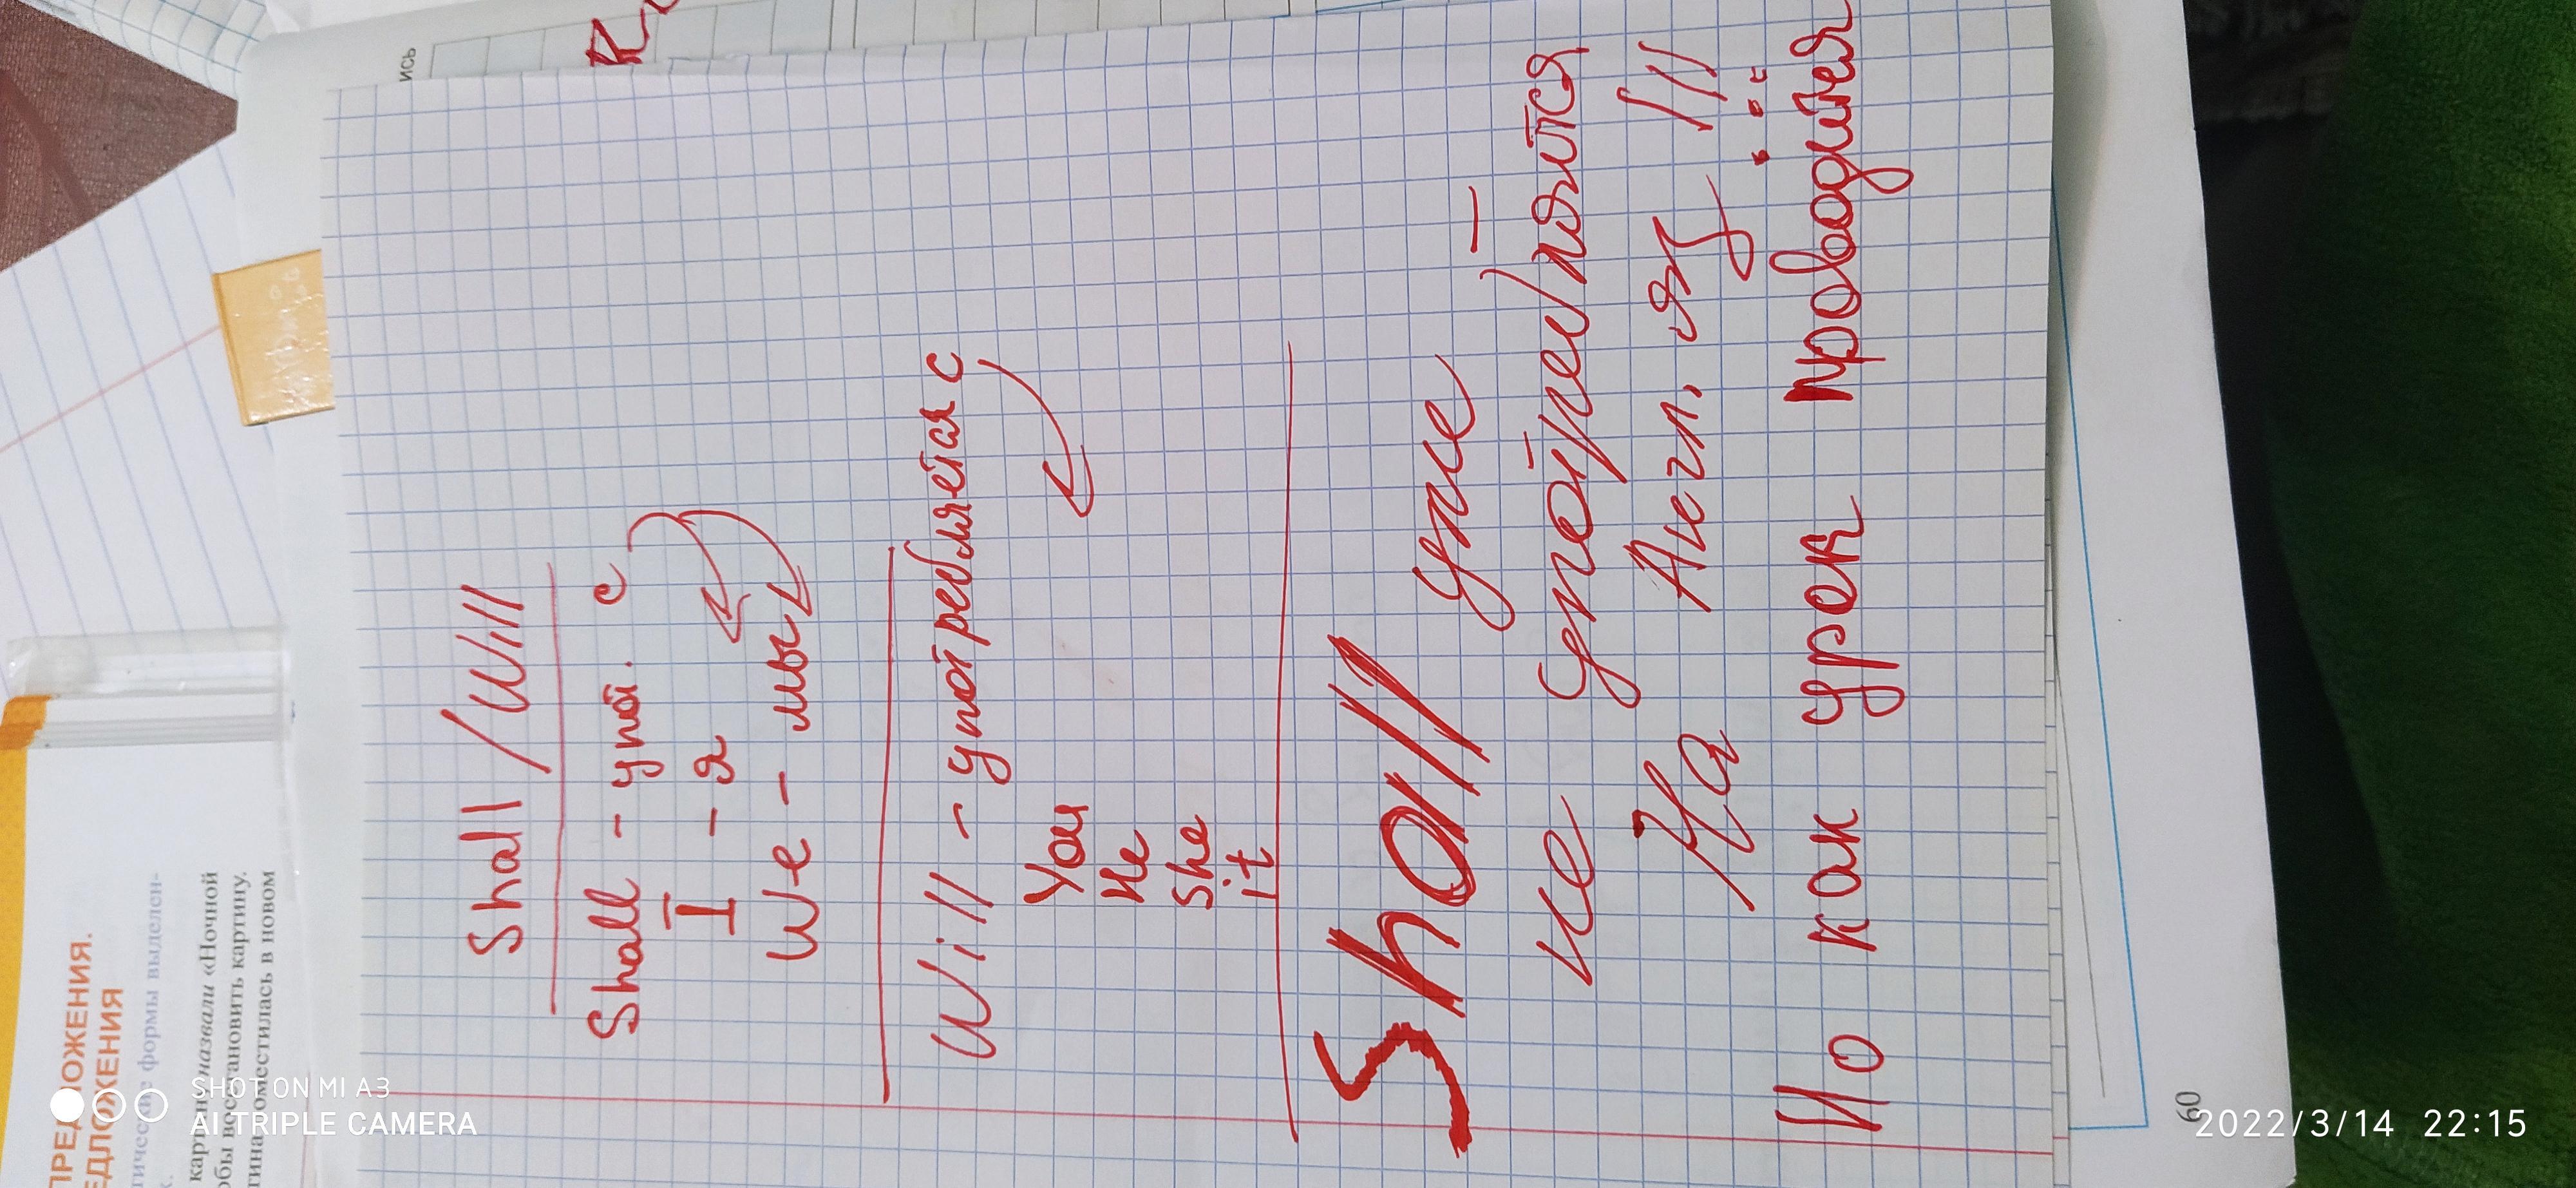 Shall / Will
Shall - упот. с
I - я
We - мы
Will - употребляется с
You
He
She
it
Shall уже
не употребляются
На Англ. яз
Но как урок проводится
ПРЕДЛОЖЕНИЯ.
формы выделен-
назвали «Ночной
восстановить картину.
в новом
60
ись
SHOT ON MI A3
AI TRIPLE CAMERA
2022/3/14 22:15